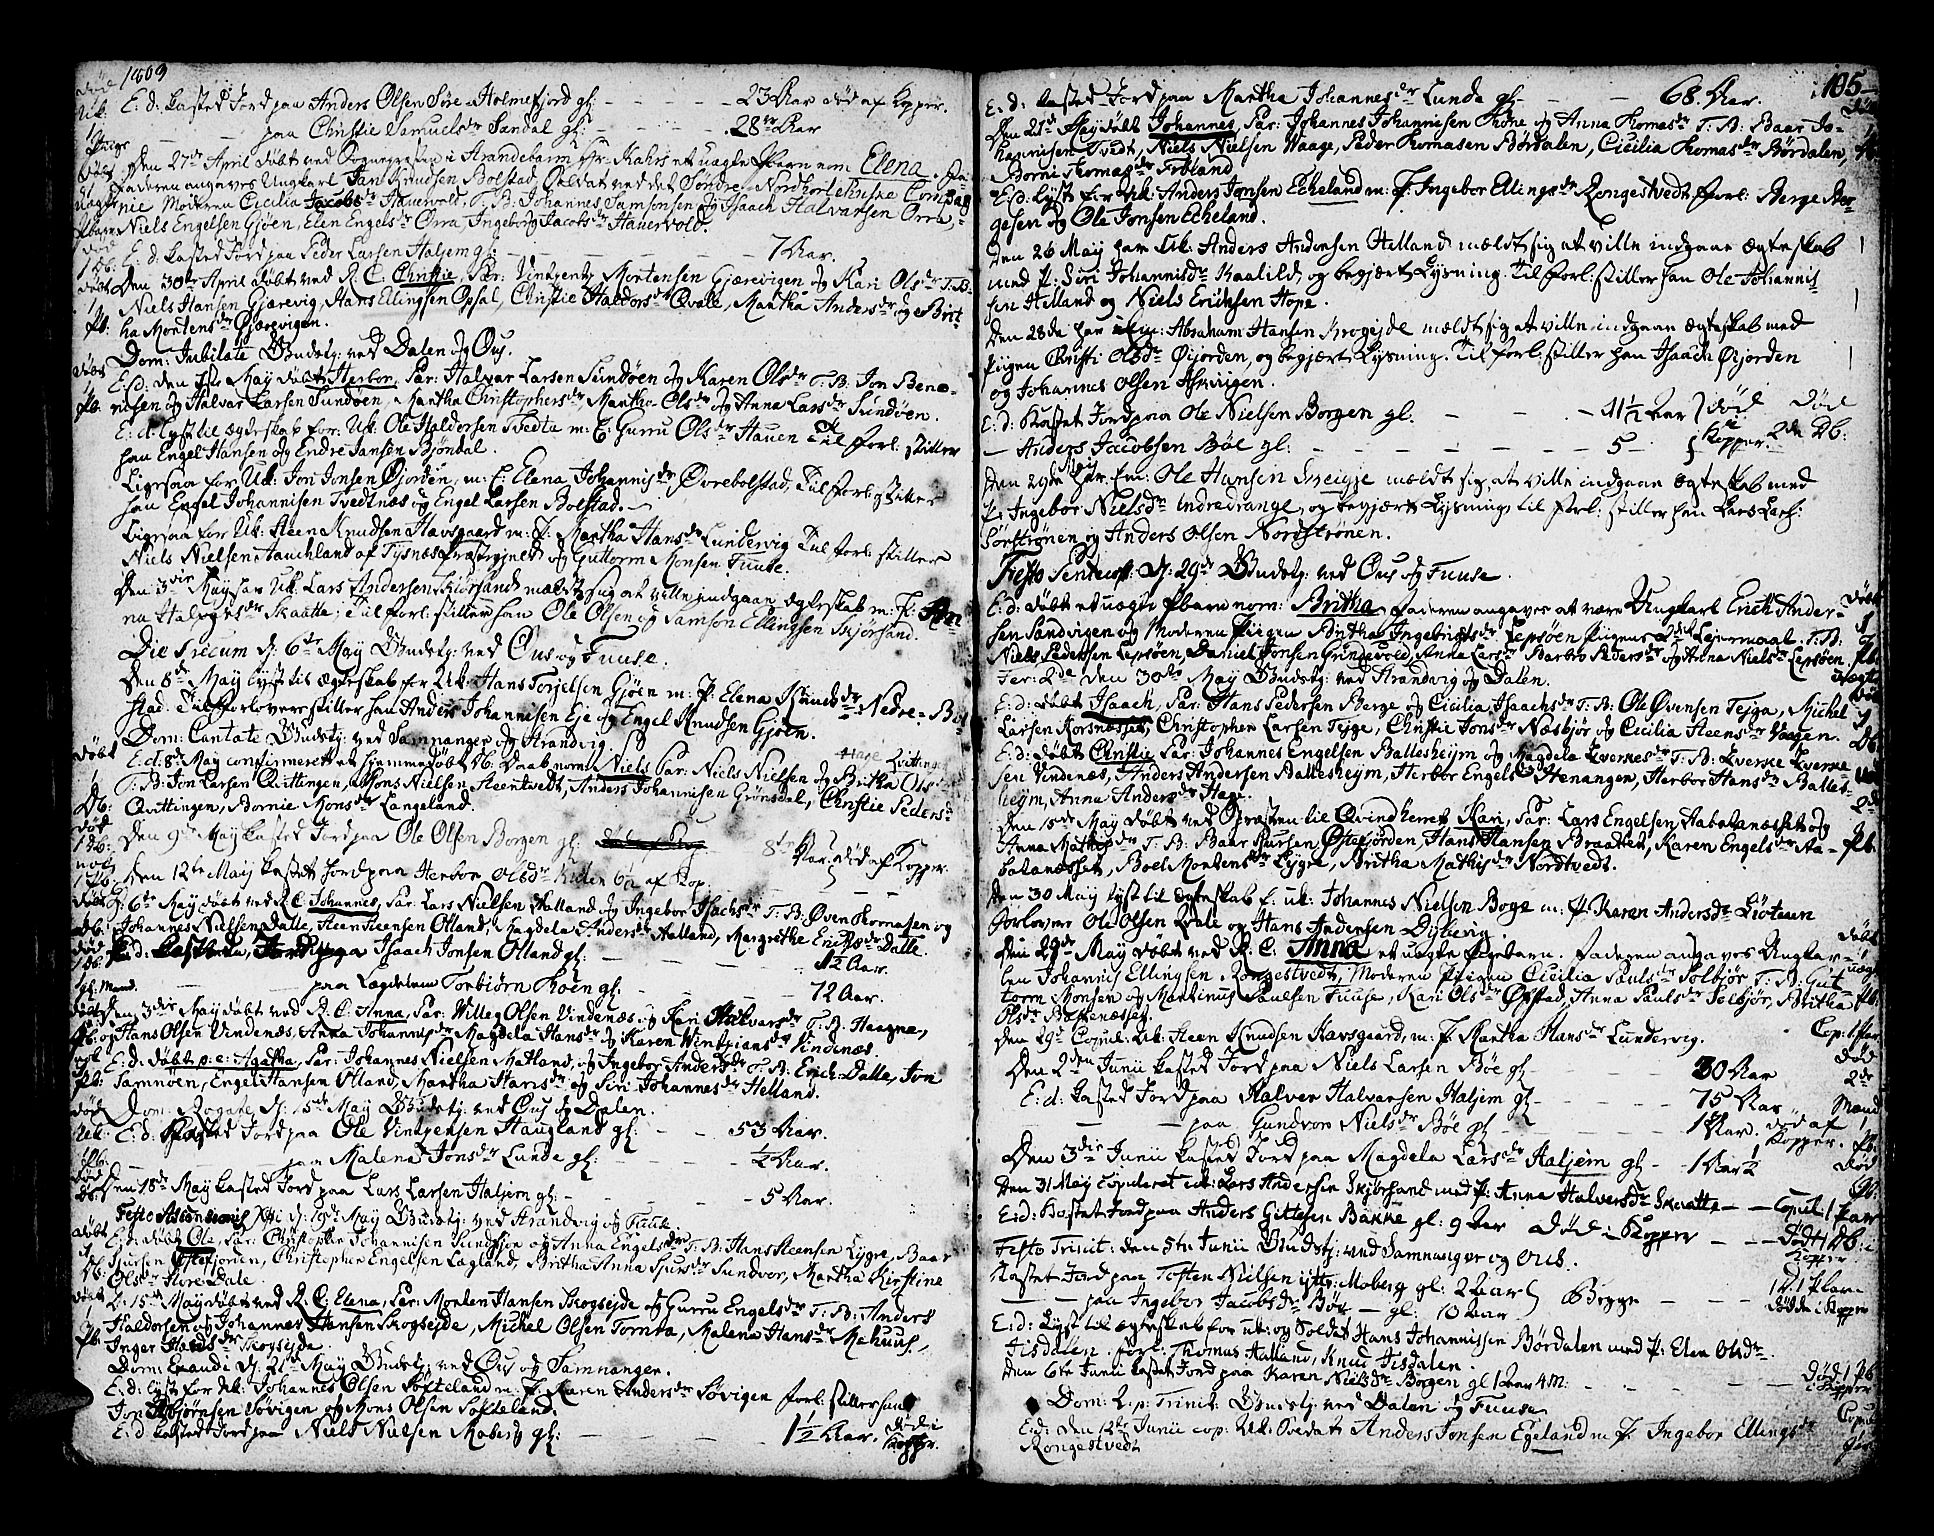 1809
E: d: Kasted Jord paa Anders Olsen Søre-Holmefjord gl: 23 Aar død af Kopper.
paa Christie Samuelsdr Sandal gl: 28 Aar
Den 27de April døbt ved Sognepresten i Strandebarm Hr: Kahrs et uægte Pbarn nom: Elena. Fa-
Faderen angaves Ungkarl Jan Knudsen Bolstad, Soldat ved det Søndre Nordhorlehnske Compag
nie Moderen Cecilia Jacobsdr Hauervold. T: B: Johannes Samsonsen og Isaach Halvarsen Orra,
Niels Engelsen Gjøen, Elen Engelsdr Orra, Ingebor Jacobsdr Hauervold.
E: d: Kasted Jord paa Peder Larsen Haljem gl: 7 Aar.
Den 30te April døbt ved R. C. Christie, Par: Vintzentz Mortensen Gjærevigen og Kari Olsdr T: B:
Niels Hansen Gjærevig, Hans Ellingsen Opsal, Christie Haldorsdr Qvale, Martha Andersdr og Brit-
ha Mortensdr Gjærevigen.
Dom: Jubilate Gudstj: ved Dalen og Ous.
E: d: den 1ste May døbt Herbor, Par: Halvar Larsen Sundøen og Karen Olsdr T. B: Jon Bene-
ditsen og Halvar Larsen Sundøen, Martha Christophersdr, Martha Olsdr og Anna Larsdr Sundøen.
E: d: Lyst til ægteskab for: Uk: Ole Haldorsen Tvedta m: E: Gurru Olsdr Hauen Til forl: stiller
han Engel Hansen og Endre Jansen Bjøndal.
Ligesaa for Uk: Jon Jonsen Øjorden, m: P: Elena Johannisdr Øvrebolstad, Til forl: stiller
han Engel Johannisen Tvedtnæs og Engel Larsen Bolstad.
Ligesaa for Uk: Steen Knudsen Havsgaard m: P: Martha Hansdr Lundervig Til forl: stiller
Niels Nielsen Hauchland af Tysnæs Præstegield og Guttorm Monsen Fuuse.
Den 3die May har Uk: Lars Andersen Skiørsand meldt sig at ville indgaae ægteskab m: P: An-
na Halvorsdr Skaatte; Til forl: stiller han Ole Olsen og Samson Ellingsen Skjørsand.
Die Precum d: 6te May Gudstj: ved Ous og Fuuse.
Den 8de May Lyst til ægteskab for Uk: Hans Torjelsen Gjøen m: P: Elena Knudsdr Nedre-Bol
stad. Til Forlovere stiller han Anders Johannisen Eje og Engel Knudsen Gjøen.
Dom: Cantate Gudstj: ved Samnanger og Strandvig.
E. d. 8de May confirmeret et hjemmedøbt Db: Daab nom: Niels Par: Niels Nielsen Hage og Britha Olsdr Qvittingen
T: B: Jon Larsen Qvittingen, Mons Nielsen Steentvedt, Anders Johannisen Grønsdal, Christie Pedersdr
Qvittingen, Bornie Monsdr Langeland.
Den 9de May Kasted Jord paa Ole Olsen Borgen gl: 8 Aar. død af Kopper.
Den 12te May kastet Jord paa Herbor Olsdr
d: 6te May døbt ved R. C. Johannes, Par: Lars Nielsen Halland og Ingebor Isachsdr T: B: Øven Thomasen og
Johannes Nielsen Dalle, Steen Steensen Olland, Magdela Andersdr Halland, Margrethe Erichsdr Dalle.
E: d: Kasted Jord paa Isaach Jonsen Olland gl: 1½ Aar.
paa Lægdelem Torbiørn Røen gl: 72 Aar.
Den 3die May døbt ved R. C. Anna, Par: Willeg Olsen Vindenæs og Kari Halvarsdr T: B: Haagne,
og Hans Olsen Vindenæs, Anna Johannisdr, Magdela Hansdr og Karen Vintziansdr Vindenæs.
E: d: døbt p. e: Agatha, Par: Johannes Nielsen Hatland, og Ingebor Andersdr T: B: Erich Dalle, Jon
Samnøen, Engel Hansen Olland, Martha Harisdr og Siri Johannesdr Helland.
Dom: Rogate, d: 15de May Gudstj: ved Ous og Dalen.
E: d. Kasted Jord paa Ole Vintzensen Haugland gl: 53 Aar.
paa Malena Jonsdr Lunde gl: ½ Aar.
Den 18de May kasted Jord paa Lars Larsen Haljem gl: 5 Aar.
Festo Ascensionis Xsti d: 19de May Gudstj: ved Strandvig og Fuuse.
E: d: døbt Ole, Par: Christopher Johannisen Sundvor og Anna Engelsdr T: B: Hans Steensen Lygre, Baar
Sjursen Østefjorden, Christopher Engelsen Lagland, Britha Anna Sjursdr Sundvor, Martha Kirstine
Olsdr Store Dale.
D: 15de May døbt ved R. C. Elena, Par: Morten Hansen Skogseide og Gurru Engelsdr T: B: Anders
Haldorsen og Johannes Hansen Skogseide, Michel Olsen Tornra, Malena Hansdr Mahuus,
Inger Hansdr Skogsejde.
Dom: Exaudi d: 21de May Gudstj: ved Ous og Samnanger.
E: d: Lyst for Uk: Johannes Olsen Søfteland m: P. Karen Andersdr Søvigen forl: stiller han
Jon Asbjørnsen Søvigen og Mons Olsen Søfteland.
E: d Kasted Jord paa Niels Nielsen Moberg gl: 1½ Aar. død i Kopper.
105
E: d: Kasted Jord paa Martha Johannesdr Lunde gl: 68 Aar.
Den 21de May døbt Johannes, Par: Johannes Johannisen Rhøne og Anna Thomasdr T. B: Baar Jo-
hannisen Tvedt, Niels Nielsen Waage, Peder Thomasen Børdalen, Cicilia Thomasdr Børdalen,
Borni Thomasdr Frøland
E: d: Lyst for Uk: Anders Jonsen Echeland m: P. Ingebor Ellingsdr Rongestvedt forl: Berge Ber-
gesen og Ole Jonsen Echeland.
Den 26 May har Uk: Anders Andersen Helland mældt sig at ville indgaae Ægteskab
med P: Siri Johannisdr Kaalild, og begjært Lysning. Til forl: stiller han Ole Johannis
sen Helland og Niels Erichsen Hope.
Den 28de har Em: Abraham Hansen Krogejde mældt sig at ville indgaae Ægteskab med
Pigen Christi Olsdr Øijorden, og begjært Lysning. Til forl: stiller han Isaach Øijorden
og Johannes Olsen
E: d: Kastet Jord paa Ole Nielsen Borgen gl. 11½ Aar død
Anders Jacobsen Bøe gl: 5 Kopper. Døde 2de Db:
Den 29de May har Em: Ole Hansen Sveigje mældt sig, at ville indgaae Ægteskab med
P: Ingebor Nielsdr Indredrange, og begjært Lysning, til forl: stiller han Lars Lars:
Sørstrønen og Anders Olsen Nordstrønen.
Festo Pentecost: d: 29de Gudstj: ved Ous og Fuuse.
E: d: døbt et uægte Pbarn nom: Britha Faderen angaves at være Ungkarl Erich Ander-
sen Sandvigen og Moderen Pigen Britha Ingebrigtsdr Lepsøen Pigens 2det Lejermaal. T: B:
Niels Pedersen Lepsøen, Daniel Jonsen Grindevold, Anna Larsdr Barbro Pedersdr og Anna Nielsdr Lepsøen.
Fer: 2da den 30de May Gudstj: ved Strandvig og Dalen.
E: d: døbt Isaach, Par: Hans Pedersen Berge og Cicilia Isaachsdr T: B: Ole Øvensen Tejga, Michel
Larsen Korsnæsset, Christopher Larsen Tygge, Christie Jonsdr Næsbjør og Cecilia Steensdr Vaagen.
E: d: døbt Christie, Par: Johannes Engelsen Ballesheym, og Magdela Sverkesdr T: B: Sverke Sverke-
sen Vindenæs, Anders Andersen Ballesheym, Herbor Engelsdr Henangen, Herbor Hansdr Balles-
heym, Anna Andersdr Hage.
Den 15de May døbt ved Opræsten til Qvindherret Kari, Par: Lars Engelsen, Aabatanæsset og
Anna Mathisdr T: B: Baar Siursen, Østefjorden, Hans Hansen Braatten, Karen Engelsdr Aa-
batanæsset, Boel Mortensdr Lygre, Britha Mathisdr Nordtvedt.
Den 30 May lyst til ægteskab f. uk: Johannes Nielsen Boge m: P. Karen Andersdr Lioteen
Forlovere Ole Olsen Dale og Hans Andersen Dybevig.
Den 29de May døbt ved R. C. Anna et uægte Pigebarn. Faderen angaves Ungkar-
len Johannis Ellingsen Rongestvedt, Moderen Pigen Cicilia Paulsdr Solbjør T: B: Gut
torm Monsen og Martinus Paulsen Fuuse, Kari Olsdr Øfstad, Anna Paulsdr Solbjør, Britha
Olsdr Bakenæsset.
Den 29de Copul: Uk: Steen Knudsen Havsgaard, m: P. Martha Hansdr Lundervig. Cop: 1 Par
Den 2den Junii kasted Jord paa Niels Larsen Bøe gl 30 Aar
E: d: Kasted Jord paa Halver Halvarsen Haljem gl 75 Aar
paa Gundvor Nielsdr Bøe gl 1 Aar. død af Kopper.
Den 3die Junii kasted Jord paa Magdela Larsdr Haljem gl 1 Aar ½
Den 31 May copuleret uk: Lars Andersen Skjørsand med P: Anna Halversdr Skaatte Copul: 1 Par
E: d: Kastet Jord paa Anders Gittesen Bakke gl: 9 Aar død i Kopper Død 1 Db: i Kopper
Festo Trinit: den 5te Junii Gudstj: ved Samnanger og Ous.
Kastet Jord paa Tosten Nielsen yttr: Moberg gl: 2 Aar
paa Ingebor Jacobsdr Bøe gl: 10 Aar Begge døde i Kopper
E: d: Lyst til ægteskab for uk: og Soldat Hans Johannissen Børdalen med P: Elen Olsdr
Jisdalen. forl: Thomas Hetland, Knud Jisdalen.
Den 6te Junii kastet Jord paa Karen Nielsdr Borgen gl 1 aar 4 M: Død 1 Pb i Kopper
Dom: 2. p: Trinit: Gudstj: ved Dalen og Fuuse
E: d: Den 12te Junii cop: Uk: Soldat Anders Jonsen Egeland m P. Ingebor Ellingsdr
Rongestvedt